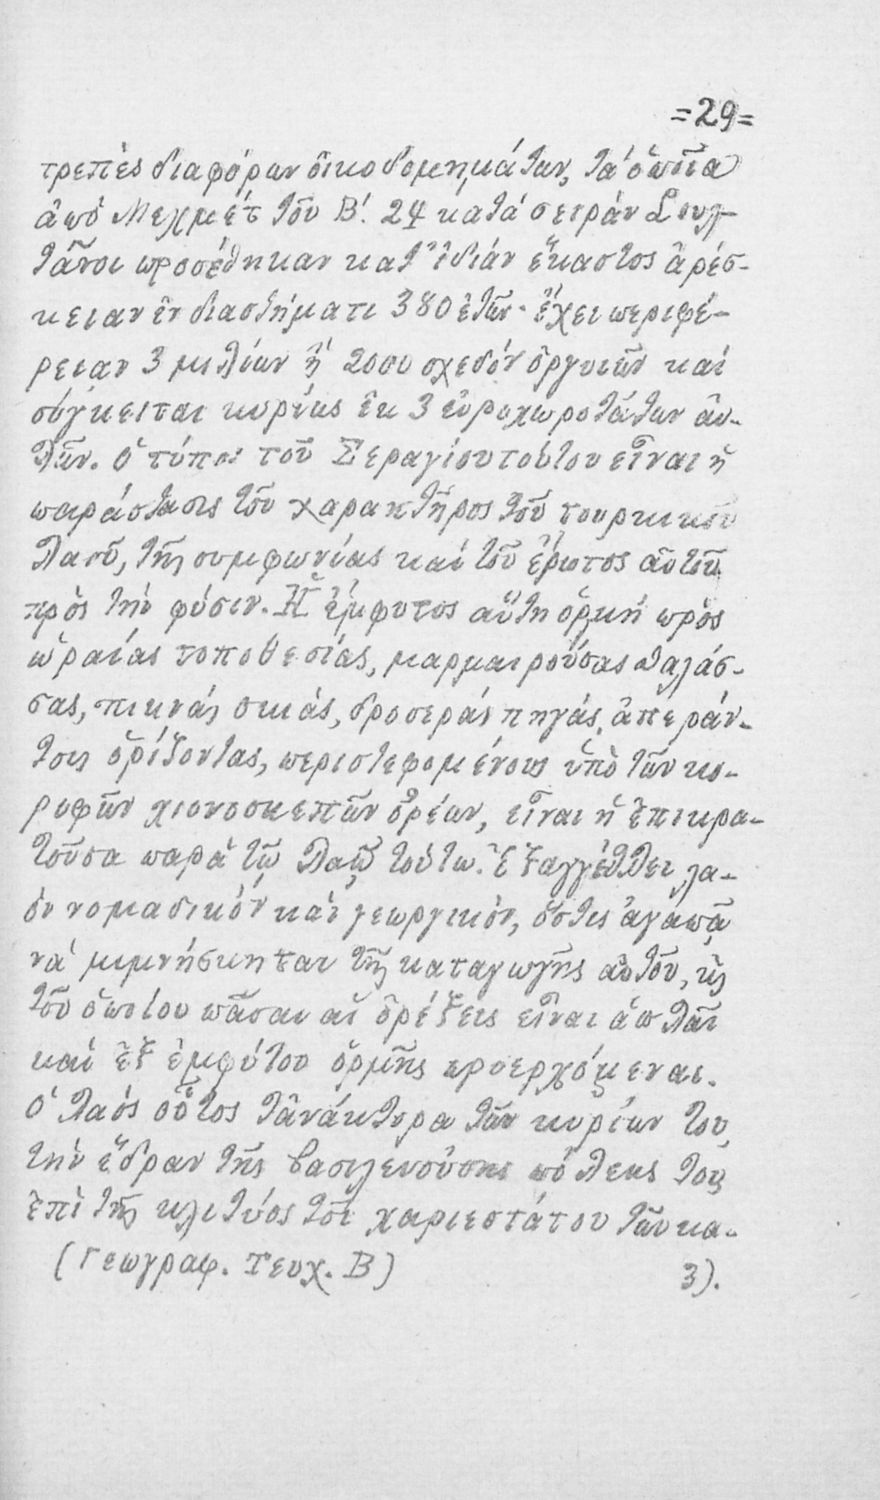 =29=
τρεπὲς διαφόρων οἰκοδομημάτων, τὰ ὁποῖα
ἀπὸ Μεχμὲτ τοῦ Β΄. 24 κατὰ σειρὰν Σουλ-
τᾶνοι προσέθηκαν κατ᾽ ἰδίαν ἕκαστος ἀρέσ-
κειαν ἐν διαστήματι 380 ἐτῶν· ἔχει περιφέ-
ρειαν 3 μιλίων ἢ 2000 σχεδὸν ὀργυιῶν καὶ
σύγκειται κυρίως ἐκ 3 εὐροχωροτάτων αὐ-
λῶν. Ὁ τύπος τοῦ Σεραγίου τούτου εἶναι ἡ
παράστασις τοῦ χαρακτῆρος τοῦ τουρκικοῦ
λαοῦ, τῆς συμφωνίας καὶ τοῦ ἔρωτος αὐτοῦ
πρὸς τὴν φύσιν. Ἡ ἔμφυτος αὕτη ὁρμὴ πρὸς
ὡραίας τοποθεσίας, μαρμαιρούσας θαλάσ-
σας, πικνὰς σκιάς, δροσερὰς πηγάς, ἀπεράν-
τους ὁρίζοντας, περιστεφομένους ὑπὸ τῶν κο-
ρυφῶν χιονοσκεπῶν ὀρέων, εἶναι ἡ ἐπικρα-
τοῦσα παρὰ τῷ λαῷ τούτῳ. Ἐξαγγέλλει λα-
ὸν νομαδικὸν καὶ γεωργικὸν, ὅστις ἀγαπᾷ
νὰ μιμνήσκηται τῆς καταγωγῆς αὐτοῦ, κ
τοῦ ὁποίου πᾶσαι αἱ ὀρέξεις εἶναι ἁπλαῖ
καὶ ἐξ ἐμφύτου ὁρμῆς προερχόμεναι.
Ὁ λαὸς οὗτος τἀνάκτορα τῶν κυρίων του,
τὴν ἕδραν τῆς βασιλευούσης πόλεως τοῦ
ἐπὶ τῆς κλιτύος τοῦ χαριεστάτου τῶν κα-
(Γεωγραφ. Τευχ. Β) 3).